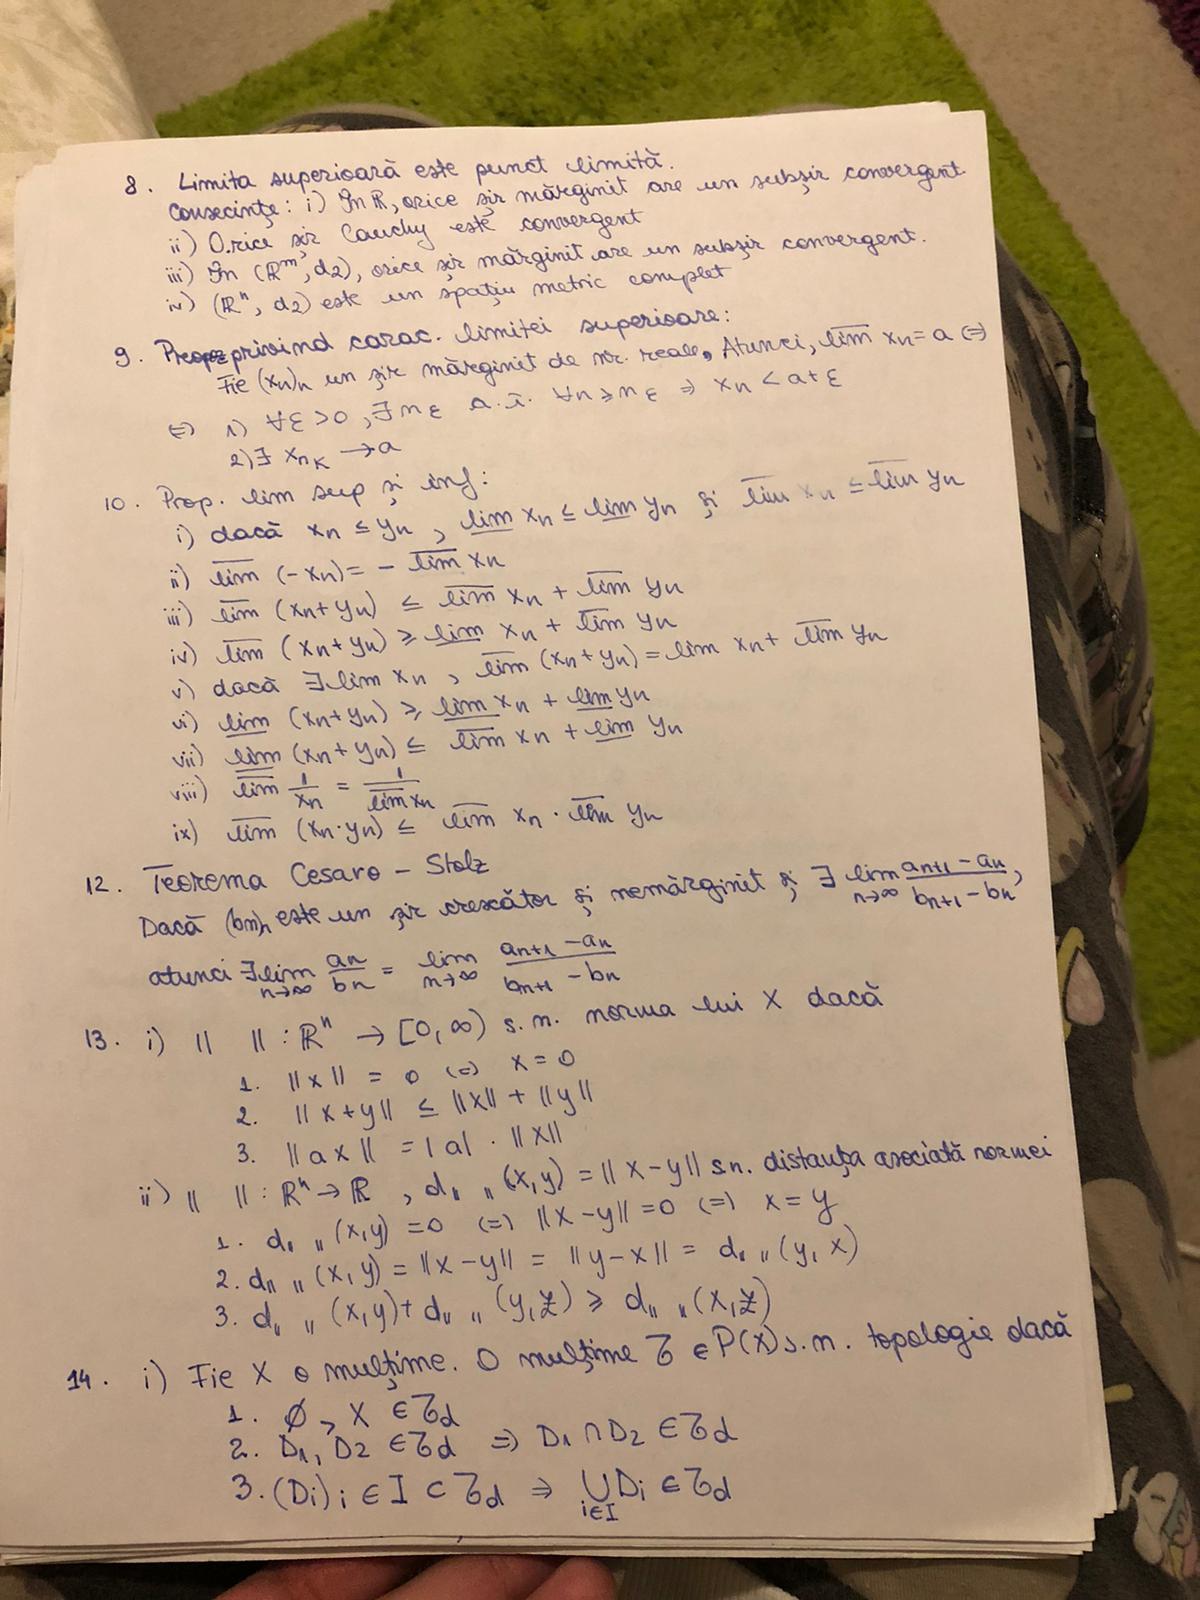 8. Limita superioară este punct limită.
Consecințe: i) În ℝ, orice șir mărginit are un subșir convergent.
ii) Orice șir Cauchy este convergent
iii) În (ℝᵐ, d₂), orice șir mărginit are un subșir convergent.
iv) (ℝⁿ, d₂) este un spațiu metric complet
9. Prop privind carac. limitei superioare:
Fie (xn)n un șir mărginit de nr. reale. Atunci, l̅i̅m̅ xn = a (=)
(=) 1) ∀ε>0, ∃nε a.î. ∀n ≥ nε ⇒ xn < a+ε
2) ∃ xnk → a
10. Prop. lim sup și inf:
i) dacă xn ≤ yn, l̲i̲m̲ xn ≤ l̲i̲m̲ yn și l̅i̅m̅ xn ≤ l̅i̅m̅ yn
ii) l̅i̅m̅ (-xn) = - l̅i̅m̅ xn
iii) l̅i̅m̅ (xn+yn) ≤ l̅i̅m̅ xn + l̅i̅m̅ yn
iv) l̅i̅m̅ (xn+yn) ≥ l̲i̲m̲ xn + l̅i̅m̅ yn
v) dacă ∃ lim xn, l̅i̅m̅ (xn+yn) = lim xn + l̅i̅m̅ yn
vi) l̲i̲m̲ (xn+yn) ≥ l̲i̲m̲ xn + l̲i̲m̲ yn
vii) l̲i̲m̲ (xn+yn) ≤ l̅i̅m̅ xn + l̲i̲m̲ yn
viii) l̅i̅m̅ 1/xn = 1/l̲i̲m̲ xn
ix) l̅i̅m̅ (xn·yn) ≤ l̅i̅m̅ xn · l̅i̅m̅ yn
12. Teorema Cesaro - Stolz
Dacă (bn)n este un șir crescător și nemărginit și ∃ lim n→∞ (an+1 - an)/(bn+1 - bn),
atunci ∃ lim n→∞ an/bn = lim n→∞ (an+1 - an)/(bn+1 - bn)
13. i) || || : ℝⁿ → [0,∞) s.n. norma lui X dacă
1. ||x|| = 0 (=) x = 0
2. ||x+y|| ≤ ||x|| + ||y||
3. ||ax|| = |a| · ||x||
ii) || || : ℝⁿ → ℝ, d|| ||(x,y) = ||x-y|| s.n. distanța asociată normei
1. d|| ||(x,y) = 0 (=) ||x-y|| = 0 (=) x = y
2. d|| ||(x,y) = ||x-y|| = ||y-x|| = d|| ||(y,x)
3. d|| ||(x,y) + d|| ||(y,z) ≥ d|| ||(x,z)
14. i) Fie X o mulțime. O mulțime τ ∈ P(X) s.n. topologie dacă
1. Ø, X ∈ τd
2. D1, D2 ∈ τd ⇒ D1 ∩ D2 ∈ τd
3. (Di) i ∈ I ⊂ τd ⇒ ⋃ i∈I Di ∈ τd